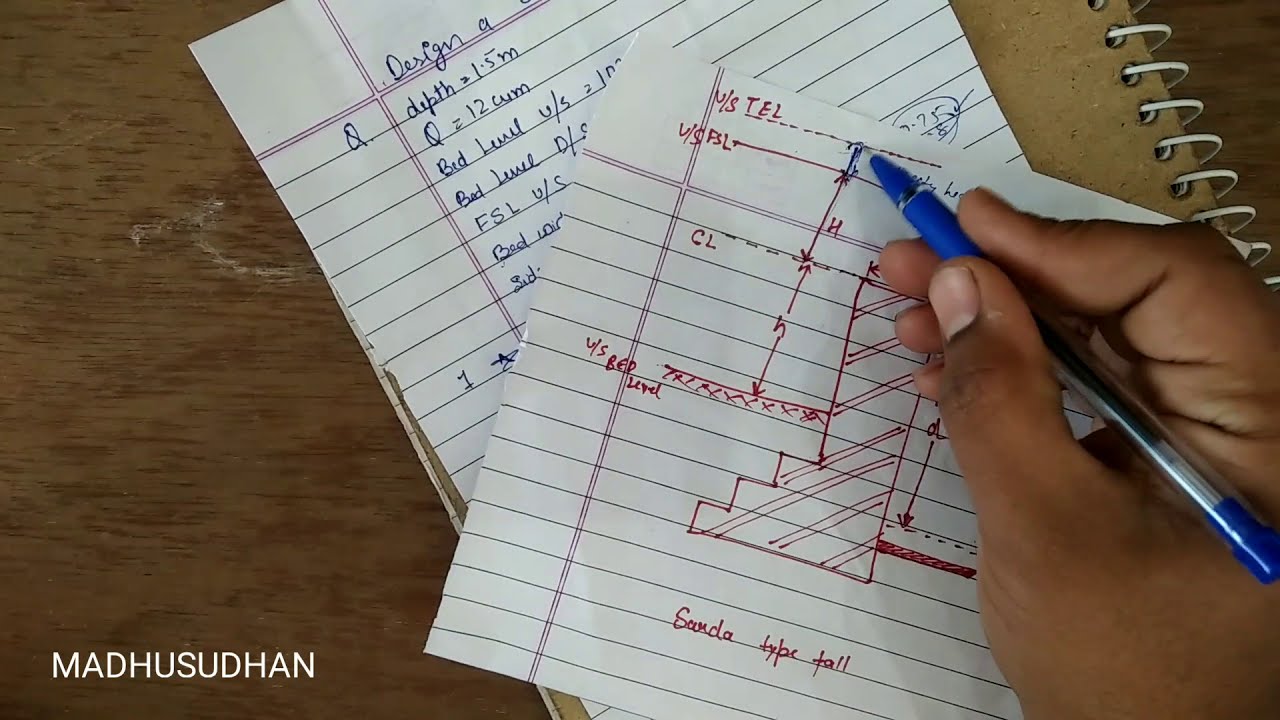 Design a
Q depth = 1.5m
Q = 12 cum
Bed Level U/S =
Bed Level D/S
FSL U/S
Bed
Sid.
1
U/S TEL
U/S FSL
H
CL
K
h
U/S BED
Level
d
Sarda type fall
MADHUSUDHAN